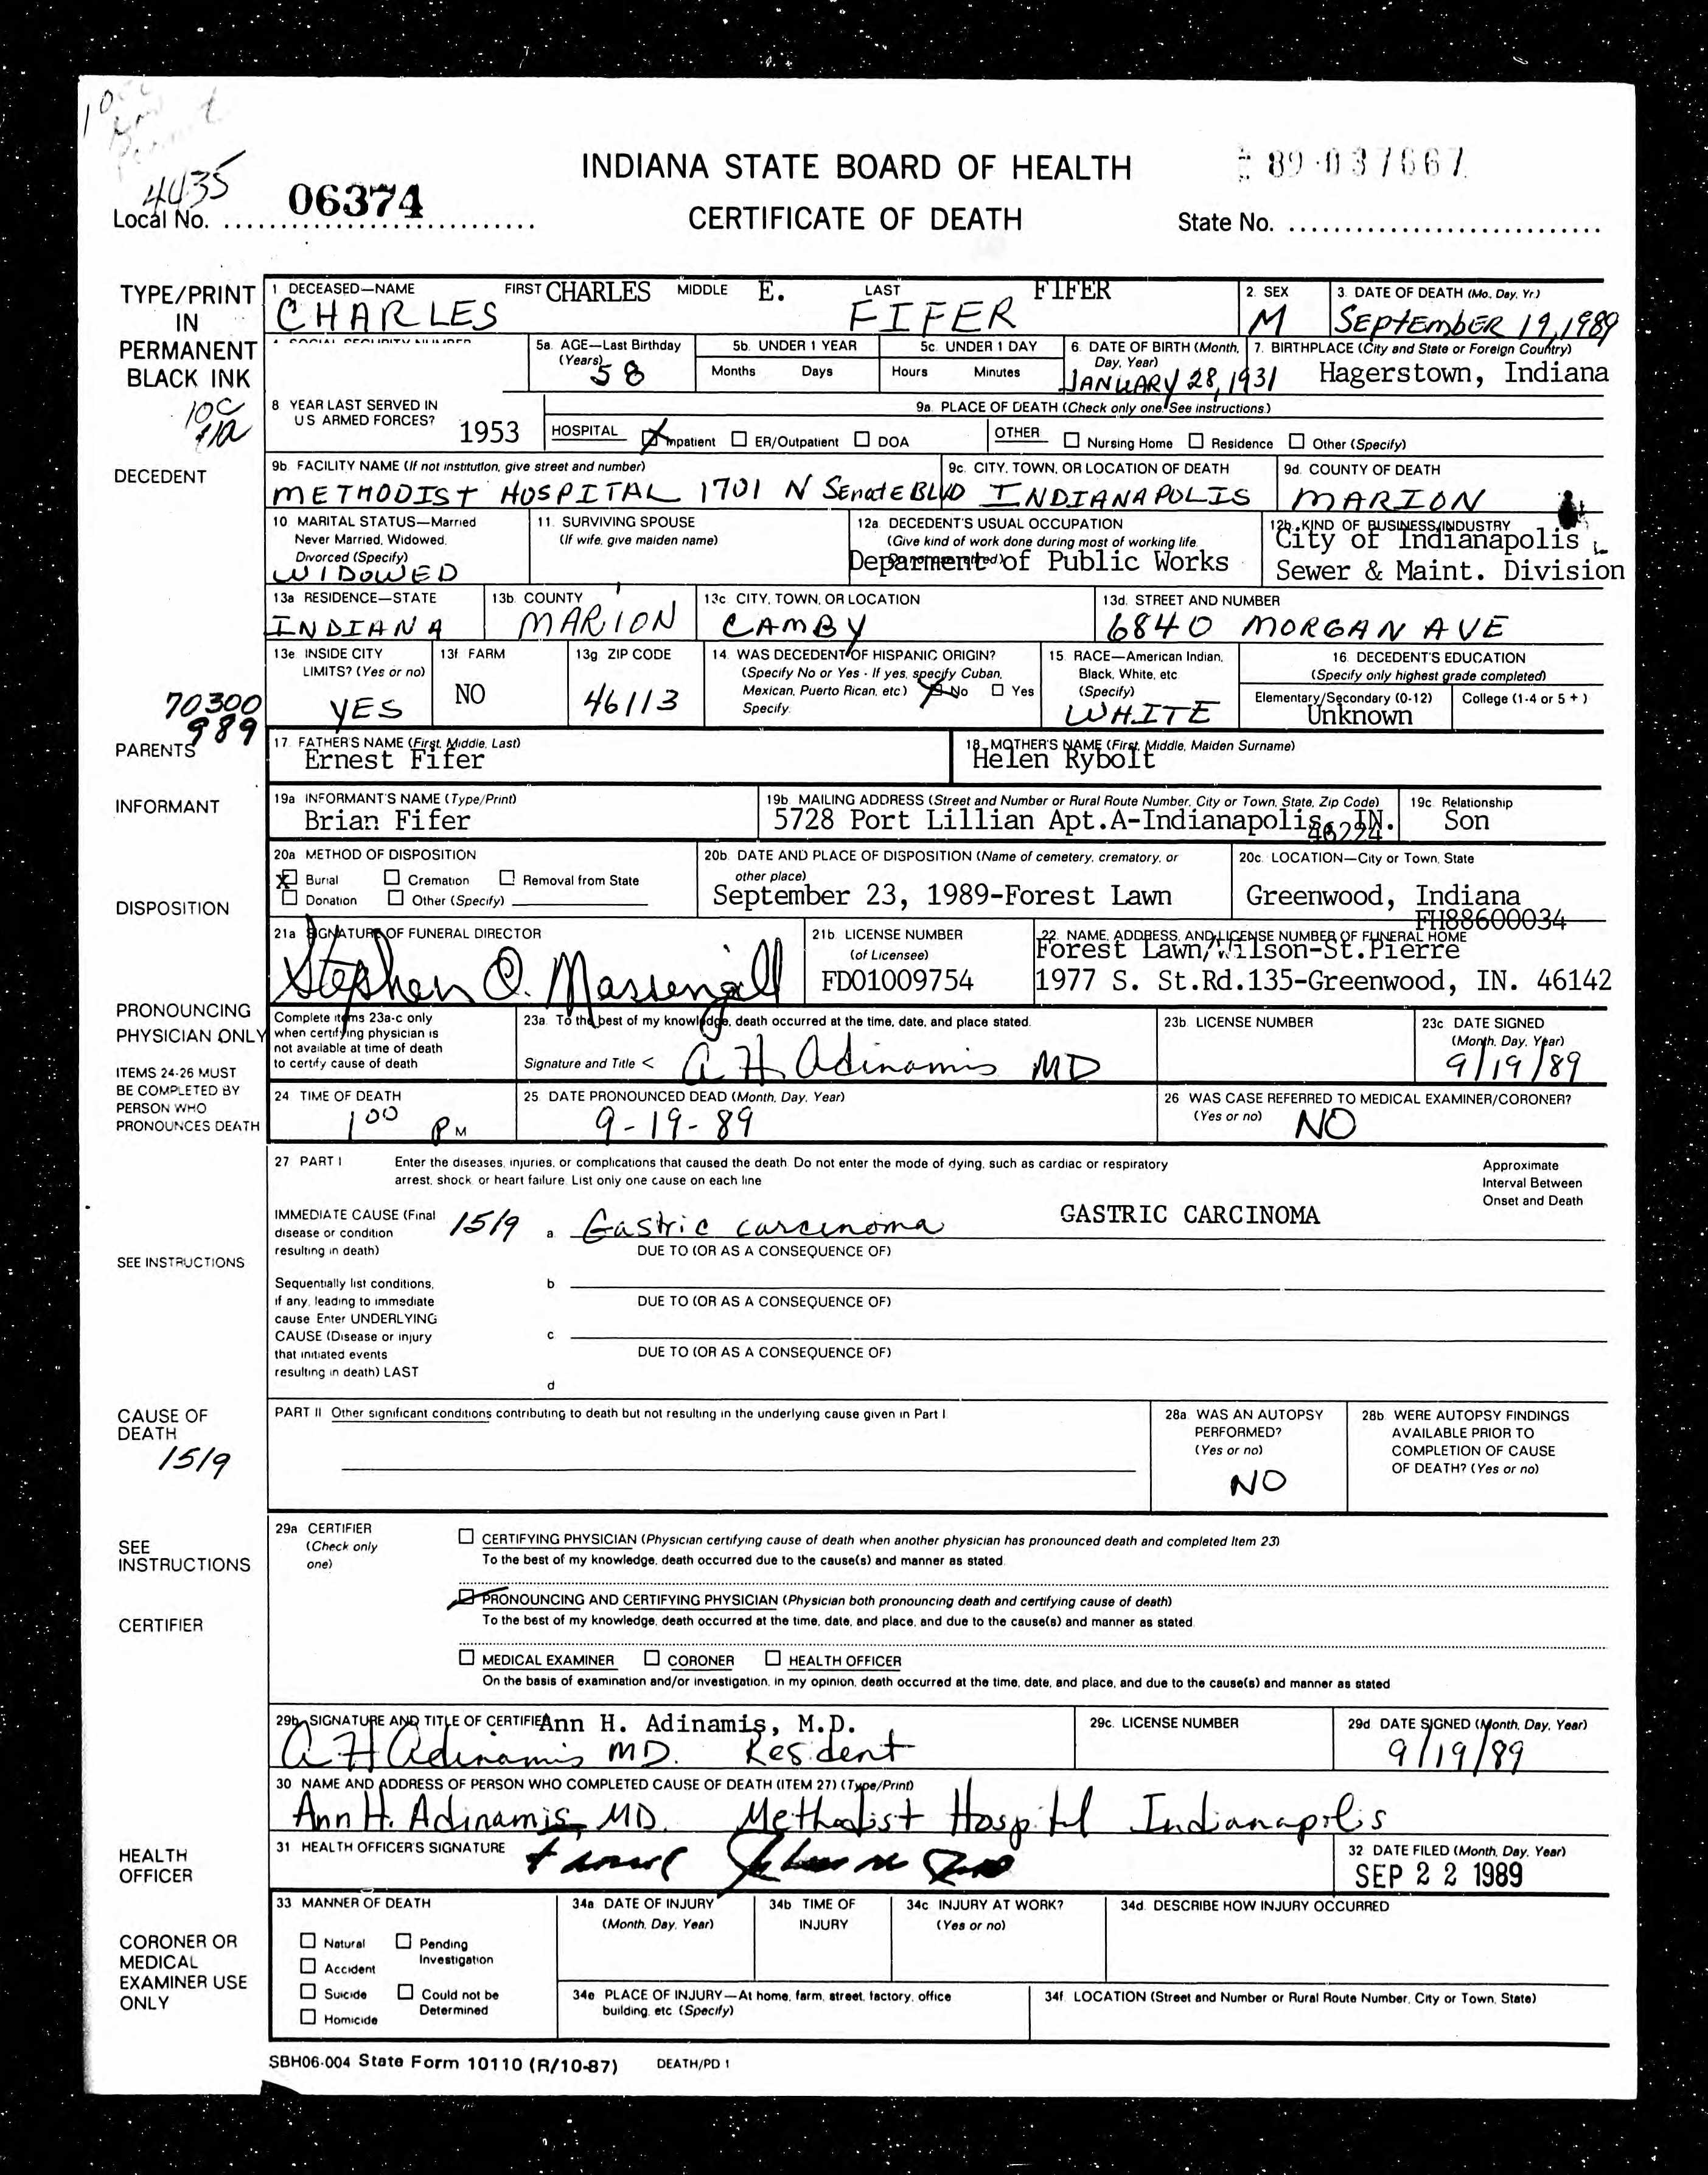 4435
Local No. 06374
INDIANA STATE BOARD OF HEALTH
CERTIFICATE OF DEATH
89-037667
State No.
TYPE/PRINT
IN
PERMANENT
BLACK INK
10c
11a
1 DECEASED—NAME FIRST CHARLES MIDDLE E. LAST FIFER
CHARLES FIFER
2. SEX
M
3. DATE OF DEATH (Mo., Day, Yr.)
SEPTEMBER 19, 1989
4. SOCIAL SECURITY NUMBER
5a. AGE—Last Birthday
(Years)
58
5b. UNDER 1 YEAR
Months Days
5c. UNDER 1 DAY
Hours Minutes
6. DATE OF BIRTH (Month,
Day, Year)
JANUARY 28, 1931
7. BIRTHPLACE (City and State or Foreign Country)
Hagerstown, Indiana
DECEDENT
8 YEAR LAST SERVED IN
U S ARMED FORCES?
1953
9a. PLACE OF DEATH (Check only one. See instructions.)
HOSPITAL Inpatient ER/Outpatient DOA
OTHER Nursing Home Residence Other (Specify)
9b. FACILITY NAME (If not institution, give street and number)
METHODIST HOSPITAL 1701 N Senate BLVD
9c. CITY, TOWN, OR LOCATION OF DEATH
INDIANAPOLIS
9d. COUNTY OF DEATH
MARION
10. MARITAL STATUS—Married
Never Married, Widowed,
Divorced (Specify)
WIDOWED
11. SURVIVING SPOUSE
(If wife, give maiden name)
12a. DECEDENT'S USUAL OCCUPATION
(Give kind of work done during most of working life.
Deparment of Public Works
12b. KIND OF BUSINESS/INDUSTRY
City of Indianapolis
Sewer & Maint. Division
13a RESIDENCE—STATE
INDIANA
13b. COUNTY
MARION
13c. CITY, TOWN, OR LOCATION
CAMBY
13d. STREET AND NUMBER
6840 MORGAN AVE
13e. INSIDE CITY
LIMITS? (Yes or no)
YES
13f. FARM
NO
13g. ZIP CODE
46113
14. WAS DECEDENT OF HISPANIC ORIGIN?
(Specify No or Yes - If yes, specify Cuban,
Mexican, Puerto Rican, etc.) No Yes
Specify:
15. RACE—American Indian,
Black, White, etc
(Specify)
WHITE
16. DECEDENT'S EDUCATION
(Specify only highest grade completed)
Elementary/Secondary (0-12) College (1-4 or 5 + )
Unknown
70300
989
PARENTS
17. FATHER'S NAME (First, Middle, Last)
Ernest Fifer
18. MOTHER'S NAME (First, Middle, Maiden Surname)
Helen Rybolt
INFORMANT
19a. INFORMANT'S NAME (Type/Print)
Brian Fifer
19b. MAILING ADDRESS (Street and Number or Rural Route Number, City or Town, State, Zip Code)
5728 Port Lillian Apt.A-Indianapolis, IN.
46224
19c. Relationship
Son
DISPOSITION
20a. METHOD OF DISPOSITION
Burial Cremation Removal from State
Donation Other (Specify)
20b. DATE AND PLACE OF DISPOSITION (Name of cemetery, crematory, or
other place)
September 23, 1989-Forest Lawn
20c. LOCATION—City or Town, State
Greenwood, Indiana
FH88600034
21a SIGNATURE OF FUNERAL DIRECTOR
Stephen Q. Massengill
21b. LICENSE NUMBER
(of Licensee)
FD01009754
22. NAME, ADDRESS, AND LICENSE NUMBER OF FUNERAL HOME
Forest Lawn/Wilson-St.Pierre
1977 S. St.Rd.135-Greenwood, IN. 46142
PRONOUNCING
PHYSICIAN ONLY
Complete items 23a-c only
when certifying physician is
not available at time of death
to certify cause of death
23a. To the best of my knowledge, death occurred at the time, date, and place stated.
Signature and Title < A H Adinamis MD
23b. LICENSE NUMBER
23c DATE SIGNED
(Month, Day, Year)
9/19/89
ITEMS 24-26 MUST
BE COMPLETED BY
PERSON WHO
PRONOUNCES DEATH
24. TIME OF DEATH
1 00 P M
25. DATE PRONOUNCED DEAD (Month, Day, Year)
9-19-89
26. WAS CASE REFERRED TO MEDICAL EXAMINER/CORONER?
(Yes or no) NO
27. PART I Enter the diseases, injuries, or complications that caused the death. Do not enter the mode of dying, such as cardiac or respiratory
arrest, shock, or heart failure. List only one cause on each line.
Approximate
Interval Between
Onset and Death
SEE INSTRUCTIONS
IMMEDIATE CAUSE (Final
disease or condition
resulting in death)
1519
a. Gastric carcinoma GASTRIC CARCINOMA
DUE TO (OR AS A CONSEQUENCE OF)
Sequentially list conditions,
if any, leading to immediate
cause. Enter UNDERLYING
CAUSE (Disease or injury
that initiated events
resulting in death) LAST
b
DUE TO (OR AS A CONSEQUENCE OF)
c
DUE TO (OR AS A CONSEQUENCE OF)
d
CAUSE OF
DEATH
1519
PART II Other significant conditions contributing to death but not resulting in the underlying cause given in Part I.
28a. WAS AN AUTOPSY
PERFORMED?
(Yes or no)
NO
28b. WERE AUTOPSY FINDINGS
AVAILABLE PRIOR TO
COMPLETION OF CAUSE
OF DEATH? (Yes or no)
SEE
INSTRUCTIONS
CERTIFIER
29a. CERTIFIER
(Check only
one)
CERTIFYING PHYSICIAN (Physician certifying cause of death when another physician has pronounced death and completed Item 23)
To the best of my knowledge, death occurred due to the cause(s) and manner as stated.
PRONOUNCING AND CERTIFYING PHYSICIAN (Physician both pronouncing death and certifying cause of death)
To the best of my knowledge, death occurred at the time, date, and place, and due to the cause(s) and manner as stated.
MEDICAL EXAMINER CORONER HEALTH OFFICER
On the basis of examination and/or investigation, in my opinion, death occurred at the time, date, and place, and due to the cause(s) and manner as stated
29b. SIGNATURE AND TITLE OF CERTIFIER Ann H. Adinamis, M.D.
A H Adinamis MD. Resident
29c. LICENSE NUMBER
29d. DATE SIGNED (Month, Day, Year)
9/19/89
30. NAME AND ADDRESS OF PERSON WHO COMPLETED CAUSE OF DEATH (ITEM 27) (Type/Print)
Ann H. Adinamis, MD. Methodist Hospital Indianapolis
HEALTH
OFFICER
31. HEALTH OFFICER'S SIGNATURE
32. DATE FILED (Month, Day, Year)
SEP 22 1989
CORONER OR
MEDICAL
EXAMINER USE
ONLY
33. MANNER OF DEATH
Natural Pending
Investigation
Accident
Suicide Could not be
Determined
Homicide
34a. DATE OF INJURY
(Month, Day, Year)
34b. TIME OF
INJURY
34c. INJURY AT WORK?
(Yes or no)
34d. DESCRIBE HOW INJURY OCCURRED
34e. PLACE OF INJURY—At home, farm, street, factory, office
building, etc. (Specify)
34f. LOCATION (Street and Number or Rural Route Number, City or Town, State)
SBH06-004 State Form 10110 (R/10-87) DEATH/PD 1